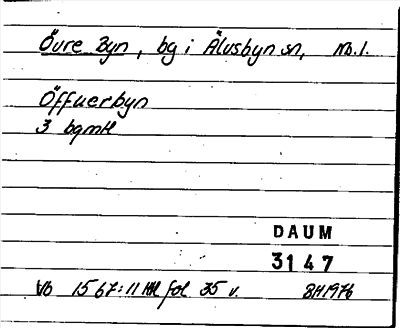 Övre Byn, bg i Älvsbyn sn, Nb.l.
Öffuerbyn
3 bgmH
DAUM
3147
Vb 1567:11 HH fol 35 v. BH1976